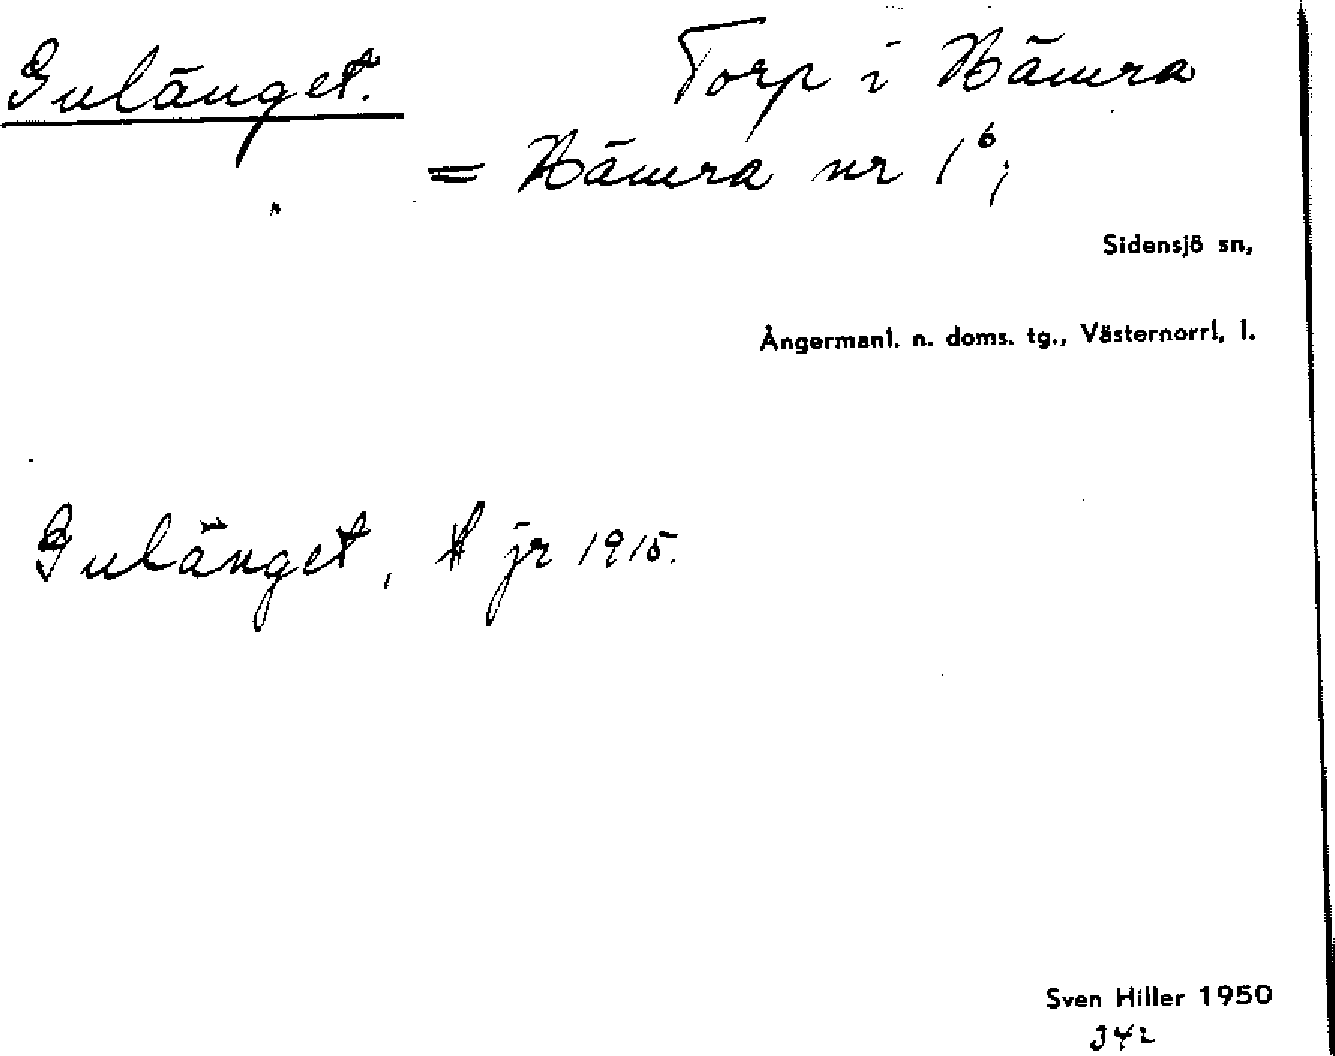 Gulänget. Torp i Hämra
= Hämra nr 1⁶;
Sidensjö sn,
Ångermanl. n. doms. tg., Västernorrl. l.
Gulänget, jr 1915.
Sven Hiller 1950
342